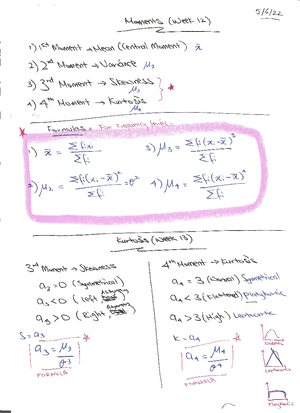 5/6/22
Moments (Week 12)
1) 1st Moment → Mean (Central Moment) x̄
2) 2nd Moment → Variance μ₂
3) 3rd Moment → Skewness μ₃
4) 4th Moment → Kurtosis μ₄
Formulas:- For frequency
1) x̄ = Σfixi / Σfi
3) μ₃ = Σfi(xi-x̄)³ / Σfi
2) μ₂ = Σfi(xi-x̄)² / Σfi = σ²
4) μ₄ = Σfi(xi-x̄)⁴ / Σfi
Kurtosis (Week 13)
3rd Moment → Skewness
a₃=0 (Symmetrical)
a₃<0 (Left
a₃>0 (Right,
S = a₃
a₃ = μ₃ / σ³
FORMULA
4th Moment → Kurtosis
a₄ = 3 (Normal) Symmetrical
a₄ < 3 (Flattened) Platykurtic
a₄ > 3 (High) Leptocurtic
K = a₄
a₄ = μ₄ / σ⁴
FORMULA
Leptocurtic
Platykurtic